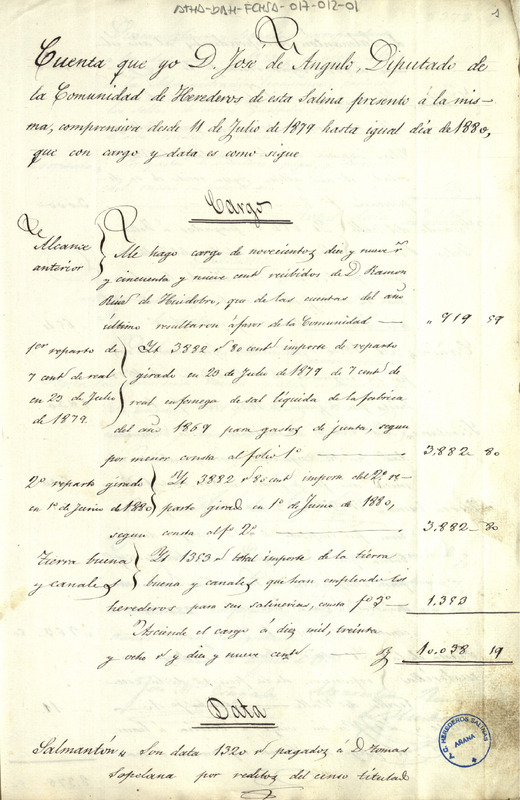 ATHA-DAH-FCHSA-017-012-01
1
Cuenta que yo D. José de Angulo, Diputado de
la Comunidad de Herederos de esta Salina presento á la mis-
ma, comprensiva desde 11 de Julio de 1879 hasta igual dia de 1880,
que con cargo y data es como sigue
Cargo
Alcance anterior
Me hago cargo de novecientos diez y nueve rs
y cincuenta y nueve cents recibidos de D. Ramon
de Huidobro, que de las cuentas del año
último resultaron á favor de la Comunidad — " 919 59
1er reparto de 7 cents de real en 23 de Julio de 1879.
Yt 3882 rs 80 cents importe de reparto
girado en 23 de Julio de 1879 de 7 cents de
real en fanega de sal líquida de la fabrica
del año 1869 para gastos de junta, segun
por menor consta al folio 1º — 3,882 80
2º reparto girado en 1º de Junio de 1880
Yt 3882 rs 80 cents importe del 2º re-
parto girado en 1º de Junio de 1880,
segun consta al fº 2º — 3,882 80
Tierra buena y canales
Yt 1353 rs total importe de la tierra
buena y canales que han empleado los
herederos para sus salinerias, consta fº 3º — 1.353
Asciende el cargo á diez mil, treinta
y ocho rs y diez y nueve cents — 10.038 19
Data
Salmantón " Son data 1320 rs pagados á D. Tomas
Sopelana por reditos del censo titulado
A. G. HEREDEROS SALINAS
ARANA